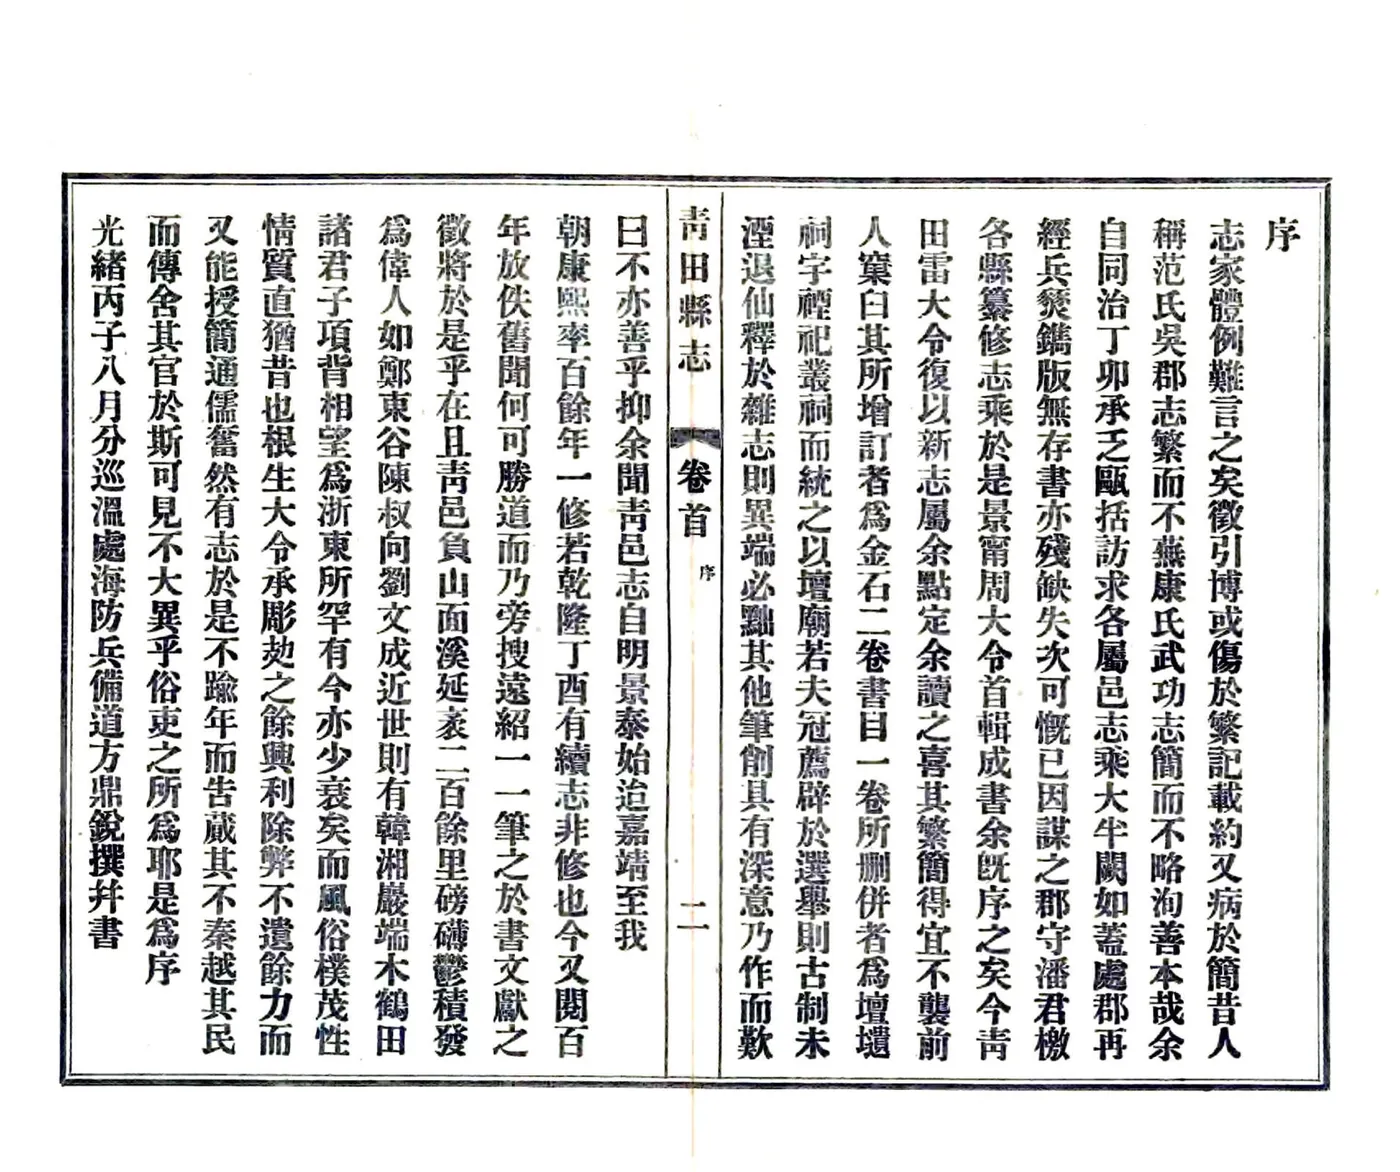 序
志家體例難言之矣徵引博或傷於繁記載約又病於簡昔人
稱范氏吳郡志繁而不蕪康氏武功志簡而不略洵善本哉余
自同治丁卯承乏甌括訪求各屬邑志乘大半闕如蓋處郡再
經兵燹鐫版無存書亦殘缺失次可慨已因謀之郡守潘君檄
各縣纂修志乘於是景甯周大令首輯成書余旣序之矣今靑
田雷大令復以新志屬余點定余讀之喜其繁簡得宜不襲前
人窠臼其所增訂者爲金石二卷書目一卷所删併者爲壇壝
祠宇禋祀叢祠而統之以壇廟若夫冠薦辟於選舉則古制未
湮退仙釋於雜志則異端必黜其他筆削具有深意乃作而歎
靑田縣志
卷首
序
二
曰不亦善乎抑余聞靑邑志自明景泰始迨嘉靖至我
朝康熙率百餘年一修若乾隆丁酉有續志非修也今又閱百
年放佚舊聞何可勝道而乃旁搜遠紹一一筆之於書文獻之
徵將於是乎在且靑邑負山面溪延袤二百餘里磅礴鬱積發
爲偉人如鄭東谷陳叔向劉文成近世則有韓湘巖端木鶴田
諸君子項背相望爲浙東所罕有今亦少衰矣而風俗樸茂性
情質直猶昔也根生大令承彫攰之餘興利除弊不遺餘力而
又能授簡通儒奮然有志於是不踰年而告蕆其不秦越其民
而傳舍其官於斯可見不大異乎俗吏之所爲耶是爲序
光緒丙子八月分巡溫處海防兵備道方鼎銳撰幷書